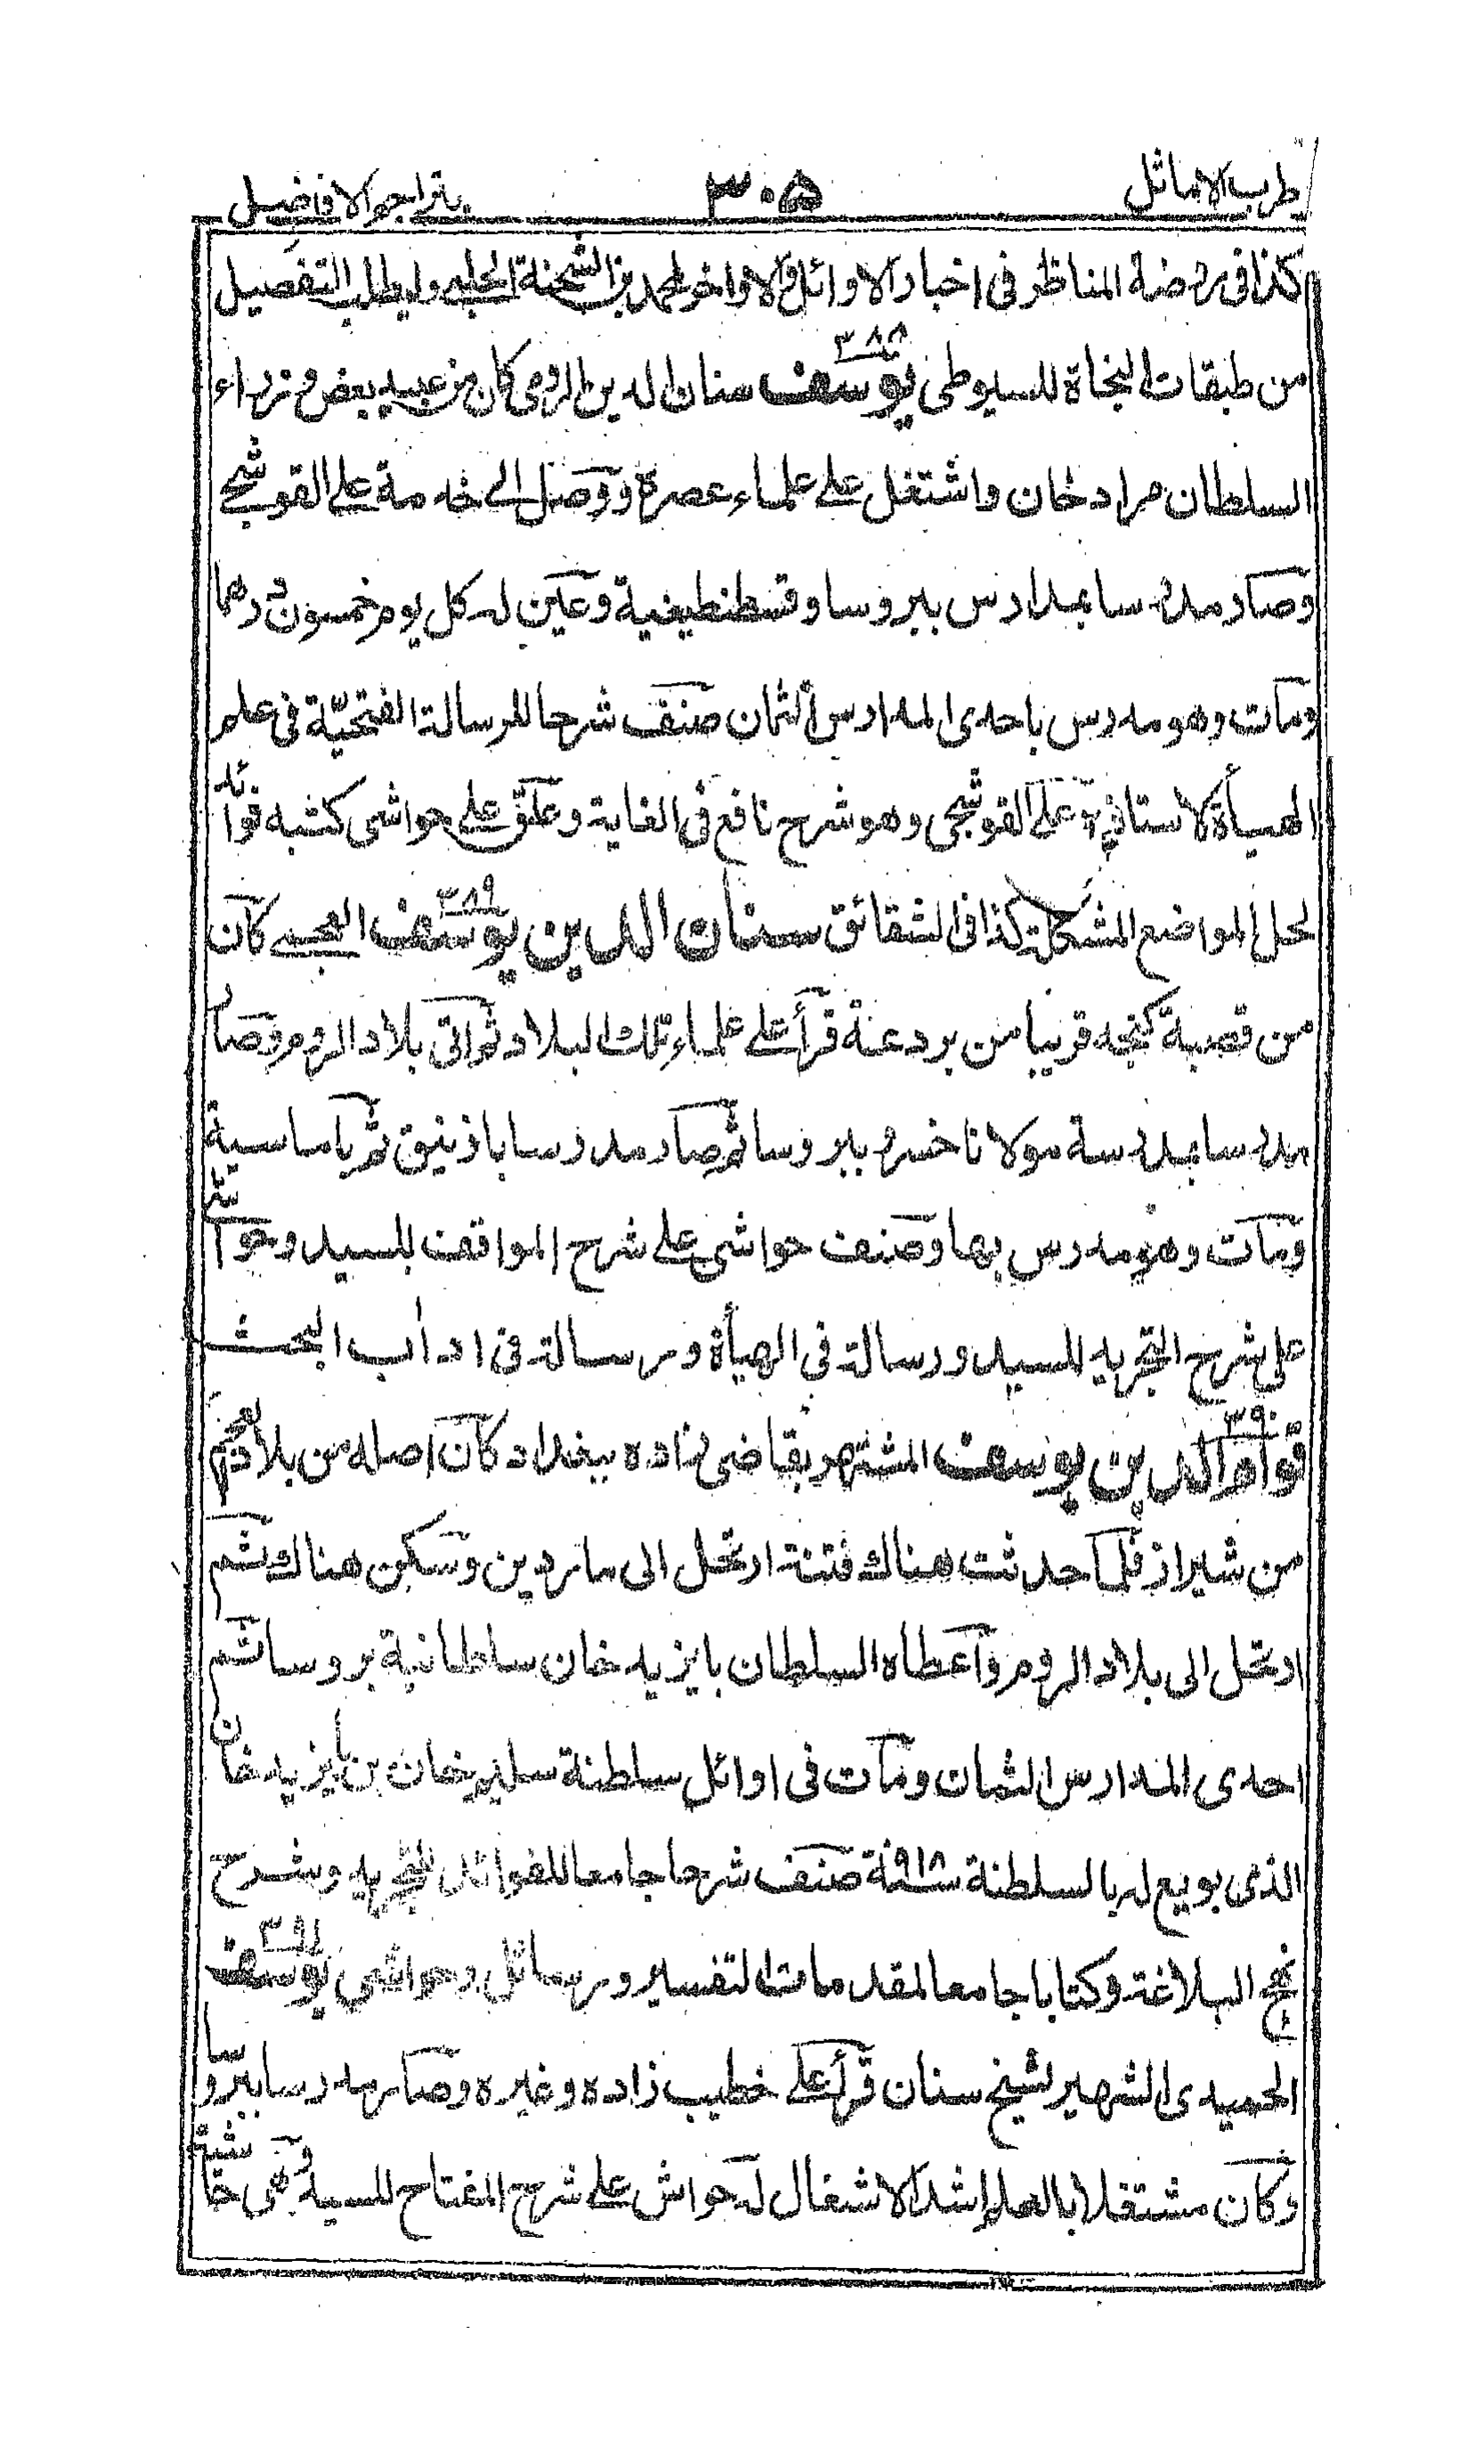 طرب الاماثل ٣٠٥ بتراجم الافاضل
كذا فى روضة المناظر فى اخبار الاوائل والاواخر لمحمد بن الشحنة الحلبى وليطلب التفصيل
من طبقات النحاة للسيوطى ٣٨٨ يوسف سنان الدين الرومى كان من عبيد بعض وزراء
السلطان مراد خان واشتغل على علماء عصره ووصل الى خدمة على القوشجى
وصار مدرسا بمدارس ببروسا وقسطنطينية وعين له كل يوم خمسون درهما
ومات وهو مدرس باحدى المدارس الثمان صنف شرحا للرسالة الفتحية فى علم
الهيأة لاستاذه على القوشجى وهو شرح نافع فى الغاية وعلق على حواشى كتبه فوائد
لحل المواضع المشكلة كذا فى الشقائق سنان الدين ٣٨٩ يوسف العجمى كان
من قصبة كنجه قريبا من بردعة قرأ على علماء تلك البلاد ثم اتى بلاد الروم وصار
مدرسا بمدرسة مولانا خسرو ببروسا ثم صار مدرسا بازنيق ثم باماسية
ومات وهو مدرس بها وصنف حواشى على شرح المواقف للسيد وحواشى
على شرح التجريد للسيد ورسالة فى الهيأة ورسالة فى اداب البحث
٣٩٠ قوام الدين يوسف المشتهر بقاضى زاده ببغداد كان اصله من بلاد العجم
من شيراز فلما حدثت هناك فتنة ارتحل الى ماردين وسكن هناك ثم
ارتحل الى بلاد الروم واعطاه السلطان بايزيد خان سلطانية بروسا ثم
احدى المدارس الثمان ومات فى اوائل سلطنة سليم خان بن بايزيد خان
الذى بويع له بالسلطنة سنة ٩١٨ صنف شرحا جامعا للفوائد للتجريد وشرح
نهج البلاغة وكتابا جامعا لمقدمات التفسير ورسائل وحواشى ٣٩١ يوسف
الحميدى الشهير لشيخ سنان قرأ على خطيب زاده وغيره وصار مدرسا ببروسا
وكان مشتغلا بالعلم اشد الاشغال له حواش على شرح المفتاح للسيد وهى حاشية